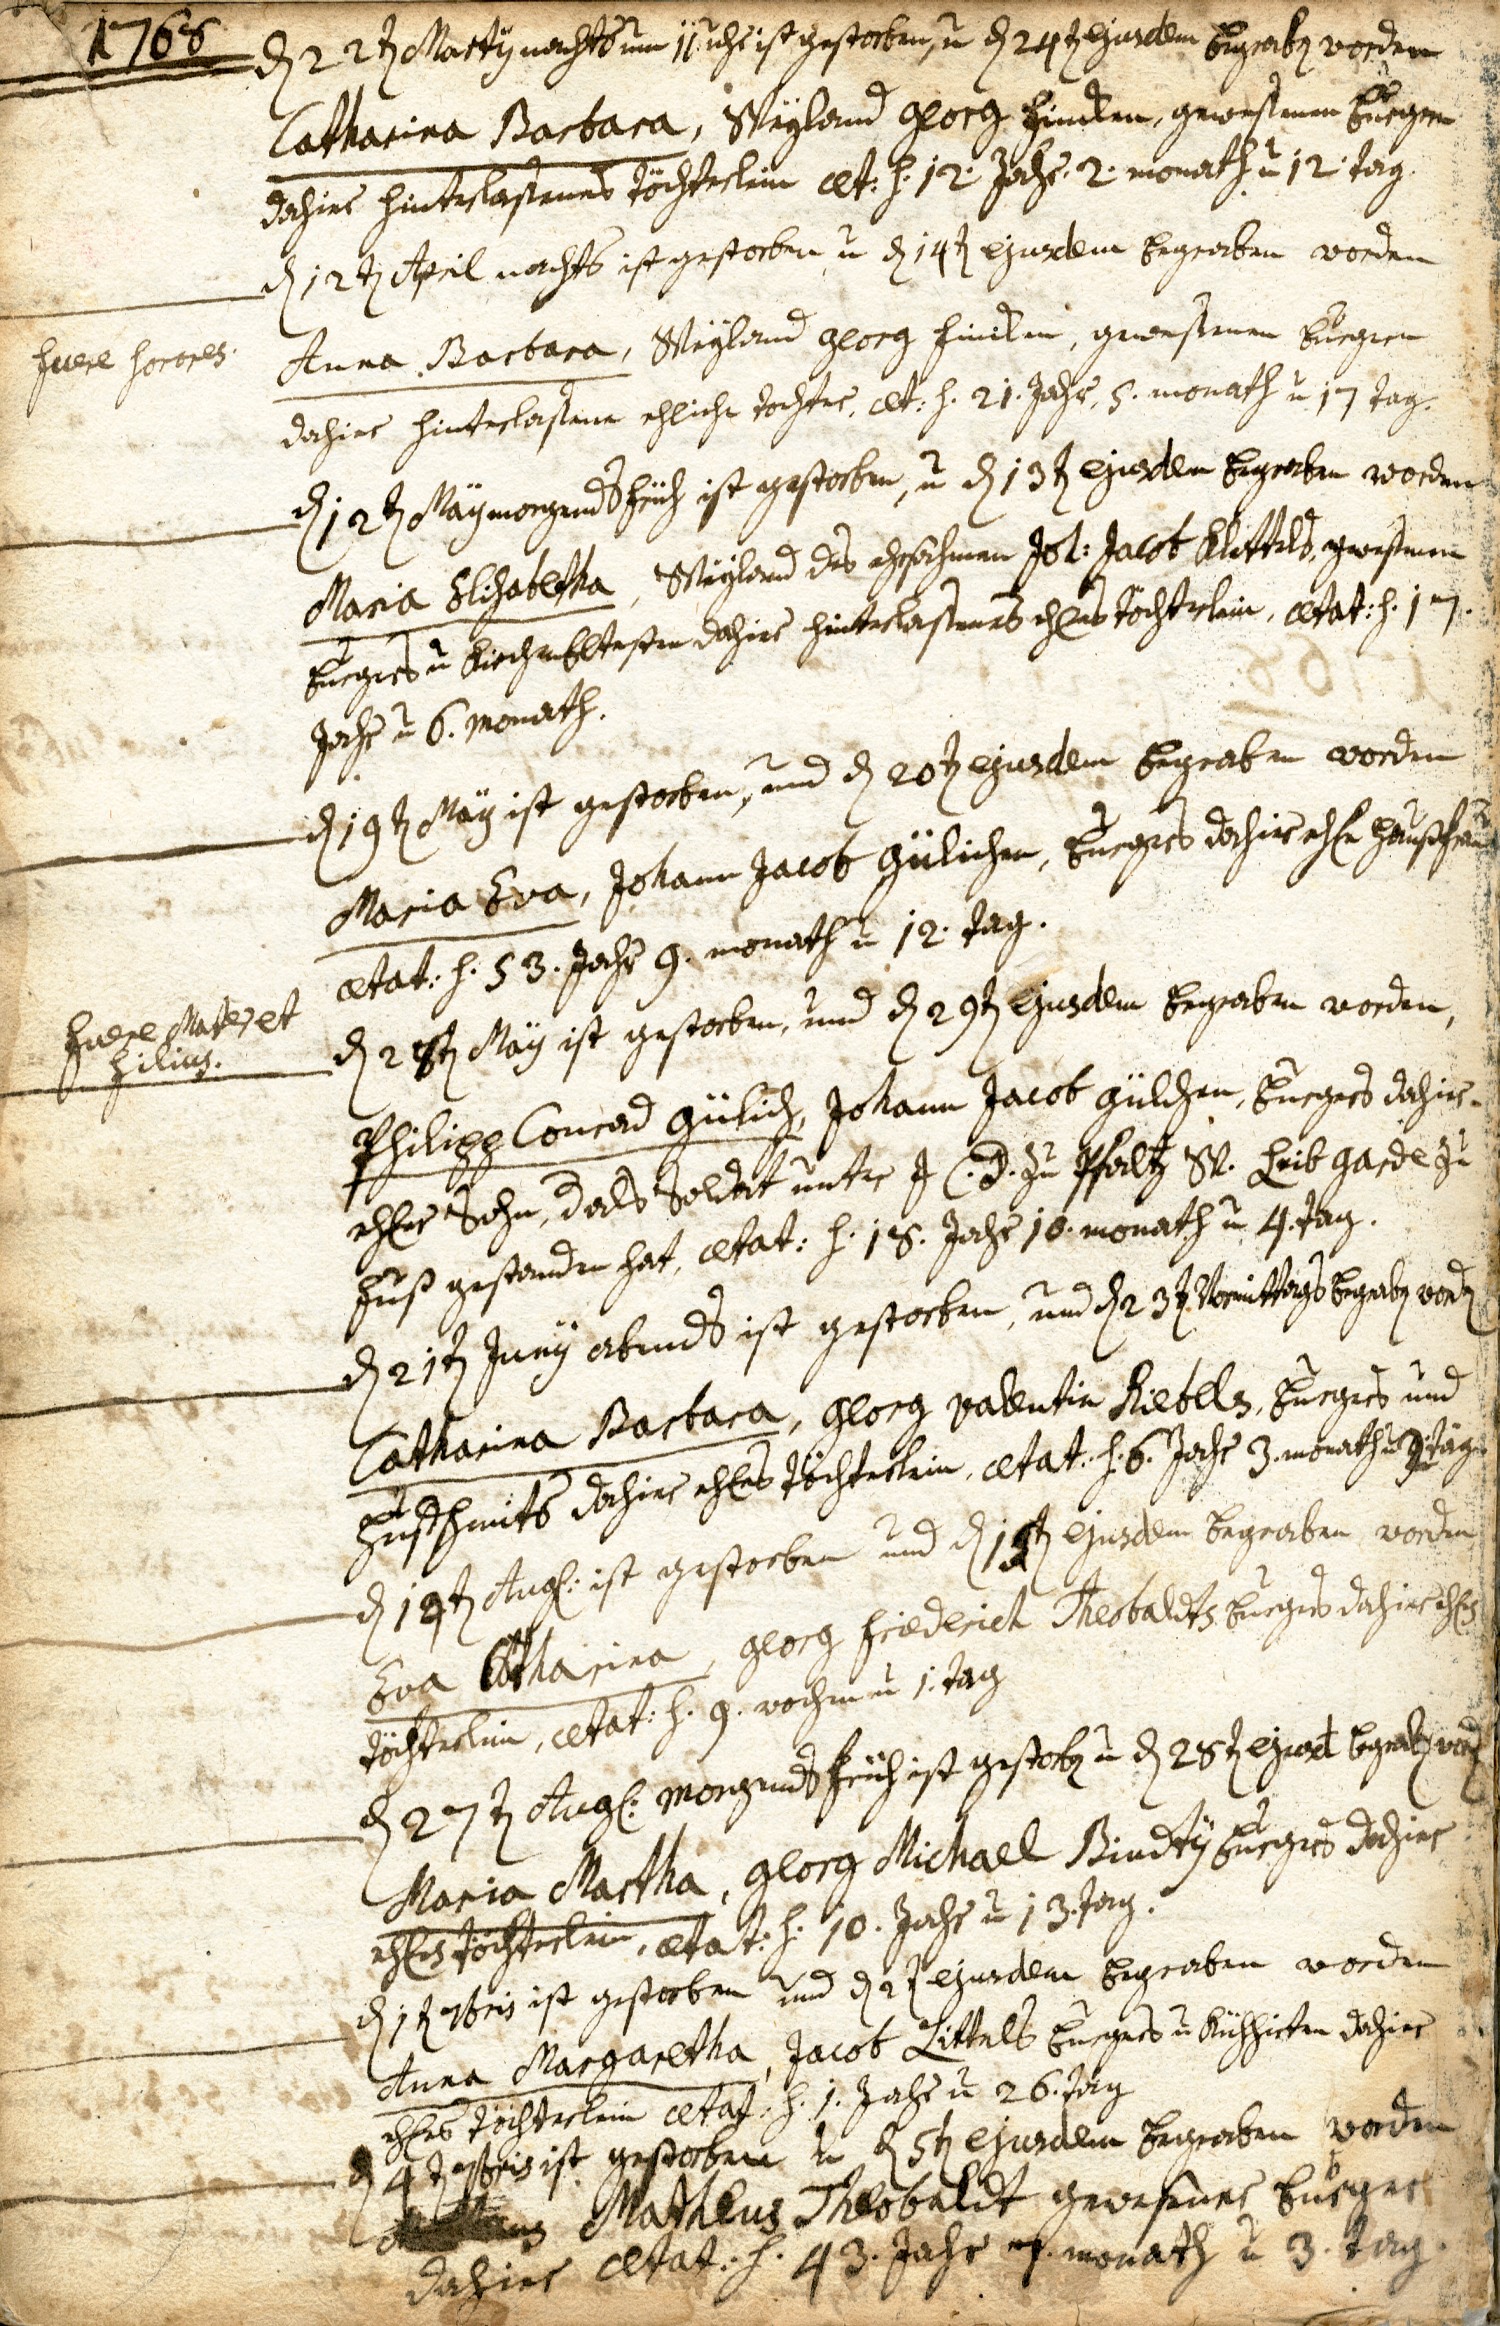 1768
d 22t Martÿ nachts um 11 uhr ist gestorben, u d 24t ejusdem begrab worden
Catharina Barbara, Weyland Georg Fincken, gewesenen Burgers
dahier hinterlaßenes Töchterlein æt: h: 12. Jahr. 2. monath u 12. tag.
d 12t April nachts ist gestorben, u d 14t ejusdem begraben worden
fuere sorores.
Anna Barbara, Weyland Georg Fincken, gewesenen Burgers
dahier hinterlaßene ehliche Tochter, æt: h. 21. Jahr, 5. monath u 17 tag.
d 12t Maÿ morgends früh ist gestorben, u d 13t ejusdem begraben worden
Maria Elisabetha, Weyland des ehrsahmen Joh: Jacob Klettels, gewesenen
Burgers u Kirchen Eltesten dahier hinterlaßenes ehles Töchterlein, ætat: h. 17.
Jahr u 6. monath.
d 19t Maÿ ist gestorben, und d 20t ejusdem begraben worden
Maria Eva, Johann Jacob Gülichen, Burgers dahier ehle Haußfrau
ætat: h. 53. Jahr 9. monath u 12. tag.
fuere Mater et
filius.
d 28t Maÿ ist gestorben, und d 29t ejusdem begraben worden,
Philipp Conrad Gülich, Johann Jacob Gülchen, Burgers dahier
ehler Sohn, d als Soldat unter J C. D. zu Pfaltz Leib Garde zu
Fuß gestanden hat, ætat: h. 18. Jahr 10. monath u 4. tag.
d 21t Junÿ abends ist gestorben, und d 23t Vormittags begrab word
Catharina Barbara, Georg Valentin Riebels, Burgers und
Hufschmits dahier ehles Töchterlein, ætat: h. 6. Jahr 3. monath u tag
d 14t Aug: ist gestorben und d 15t ejusdem begraben worden
Eva Catharina, Georg Friederich Theobaldts Burgers dahier ehles
Töchterlein, ætat: h. 9. wochen u 1. tag
d 27t Aug: morgends früh ist gestorb u d 28t ejusd begrab word
Maria Martha, Georg Michael Bindty Burgers dahier
ehles Töchterlein, ætat: h. 10. Jahr u 13. tag.
d 1t 7bris ist gestorben und d 2t ejusdem begraben worden
Anna Margaretha, Jacob Littels Burgers u Kühhirten dahier
ehles Töchterlein ætat: h. 1. Jahr u 26. tag
d 4t 7bris ist gestorben u d 5t ejusdem begraben worden
Matheus Theobaldt gewesener Burger
dahier ætat: h. 43. Jahr monath u 3. tag.